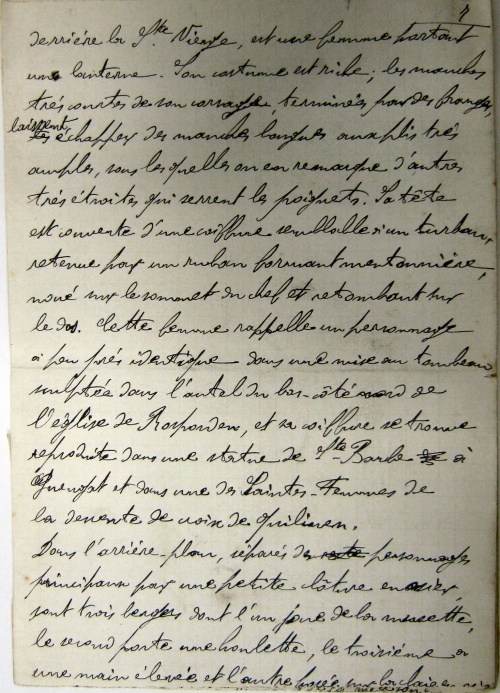 7
derrière la Ste Vierge, est une femme portant
une lanterne. Son costume est riche ; les manches
très courtes de son corsage terminées par des franges,
laissent échapper des manches longues aux plis très
amples, sous lesquelles on en remarque d'autres
très étroites qui serrent les poignets. Sa tête
est couverte d'une coiffure semblable à un turban,
retenue par un ruban formant mentonnière,
noué sur le sommet du chef et retombant sur
le dos. Cette femme rappelle un personnage
à peu près identique dans une mise au tombeau
sculptée dans l'autel du bas-côté nord de
l'église de Rosporden, et sa coiffure se trouve
reproduite dans une statue de Ste-Barbe à
Guengat et dans une des Saintes-Femmes de
la descente de croix de Quilinen.
Dans l'arrière-plan, séparés des personnages
principaux par une petite clôture en osier,
sont trois bergers dont l'un joue de la musette,
le second porte une houlette, le troisième a
une main élevée et l'autre posée sur la